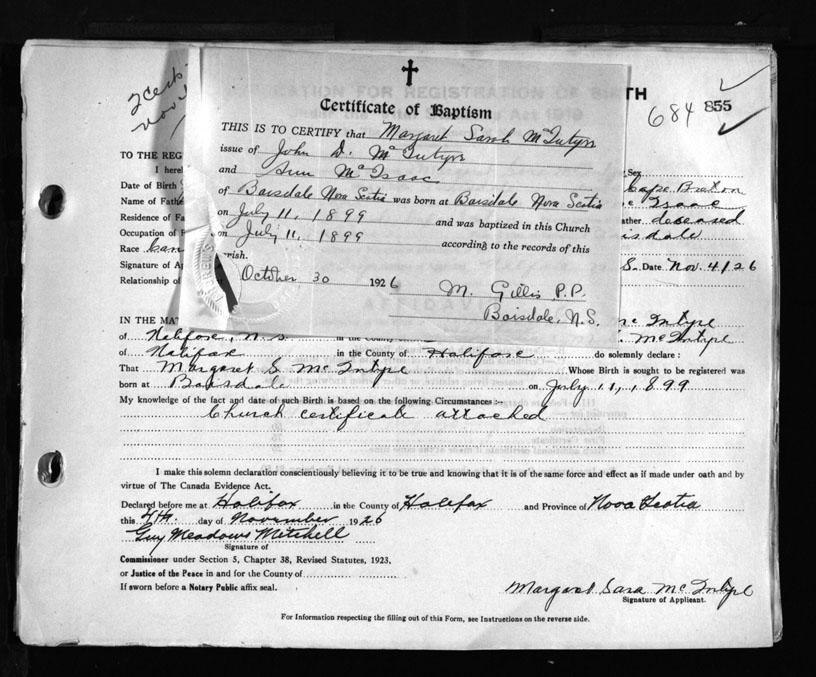 2 Cert
Nov
684 855
Certificate of Baptism
THIS IS TO CERTIFY that Margaret Sarah McIntyre
issue of John D. McIntyre
and Ann McIsaac
of Boisdale Nova Scotia was born at Boisdale Nova Scotia
on July 11, 1899 and was baptized in this Church
on July 11, 1899 according to the records of this
rish.
October 30 1926 M. Gillis P.P.
Boisdale, N.S.
CATION FOR REGISTRATION OF BIRTH
TO THE REG
I here
Sex
Date of Birth Cape Breton
Name of Fathe c Isaac
Residence of Fa ather deceased
Occupation of F isdale
Race Can
Signature of Ap S. Date Nov. 4/26
Relationship of
AFFIDAVI
IN THE MAT Mc Intyre
of Halifax, N.S. in the County McIntyre
of Halifax in the County of Halifax do solemnly declare :
That Margaret S. McIntyre Whose Birth is sought to be registered was
born at Boisdale on July 11, 1899
My knowledge of the fact and date of such Birth is based on the following Circumstances :-
Church certificate attached
I make this solemn declaration conscientiously believing it to be true and knowing that it is of the same force and effect as if made under oath and by
virtue of The Canada Evidence Act.
Declared before me at Halifax in the County of Halifax and Province of Nova Scotia
this 4th. day of November 1926
Guy Meadows Mitchell
Signature of
Commissioner under Section 5, Chapter 38, Revised Statutes, 1923,
or Justice of the Peace in and for the County of
If sworn before a Notary Public affix seal.
Margaret Sara McIntyre
Signature of Applicant.
For Information respecting the filling out of this Form, see Instructions on the reverse side.